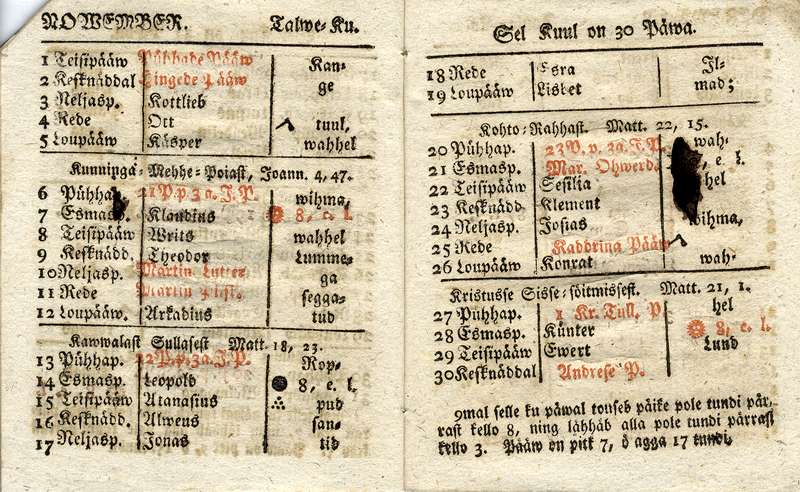 NOWEMBER. Talwe-Ku.
1 Teisipääw Pühhade Pääw Kan-
2 Kesknäddal Hingede Pääw ge
3 Neljasp. Kottlieb
4 Rede Ott tuul,
5 Loupääw Käsper wahhel
Kunninga-Mehhe-Poiast, Joann. 4, 47.
6 Pühhap. 21 P. p. 3 a. J. P. wihma,
7 Esmasp. Klaudius 8, e. l.
8 Teisipääw Writs wahhel
9 Kesknädd. Theodor Lumme-
10 Neljasp. Martin Luter ga
11 Rede Martin Pisk. segga-
12 Loupääw. Arkadius tud
Kawwalast Sullasest Matt. 18, 23.
13 Pühhap. 22 P. p. 3 a. J. P. Rop-
14 Esmasp. Leopold 8, e. l.
15 Teisipääw Atanasius pud
16 Kesknädd. Alwens san-
17 Neljasp. Jonas tid
Sel Kuul on 30 Päwa.
18 Rede Esra Il-
19 Loupääw Lisbet mad;
Kohto-Rahhast. Matt. 22, 15.
20 Pühhap. 23 P. p. 3 a. J. P. wah-
21 Esmasp. Mar. Ohwerd. e. l.
22 Teisipääw Sesilia hel
23 Kesknädd Klement
24 Neljasp. Josias wihma,
25 Rede Kaddrina Pääw
26 Loupääw Konrat wah-
Kristusse Sisse-söitmissest. Matt. 21, 1.
27 Pühhap. 1 Kr. Tull. P. hel
28 Esmasp. Künter 8, e. l.
29 Teisipääw Ewert Lund
30 Kesknäddal Andrese P.
9mal selle ku päwal touseb päike pole tundi pär-
rast kello 8, ning lähhäb alla pole tundi pärrast
kello 3. Pääw on pitk 7, ö agga 17 tundi.